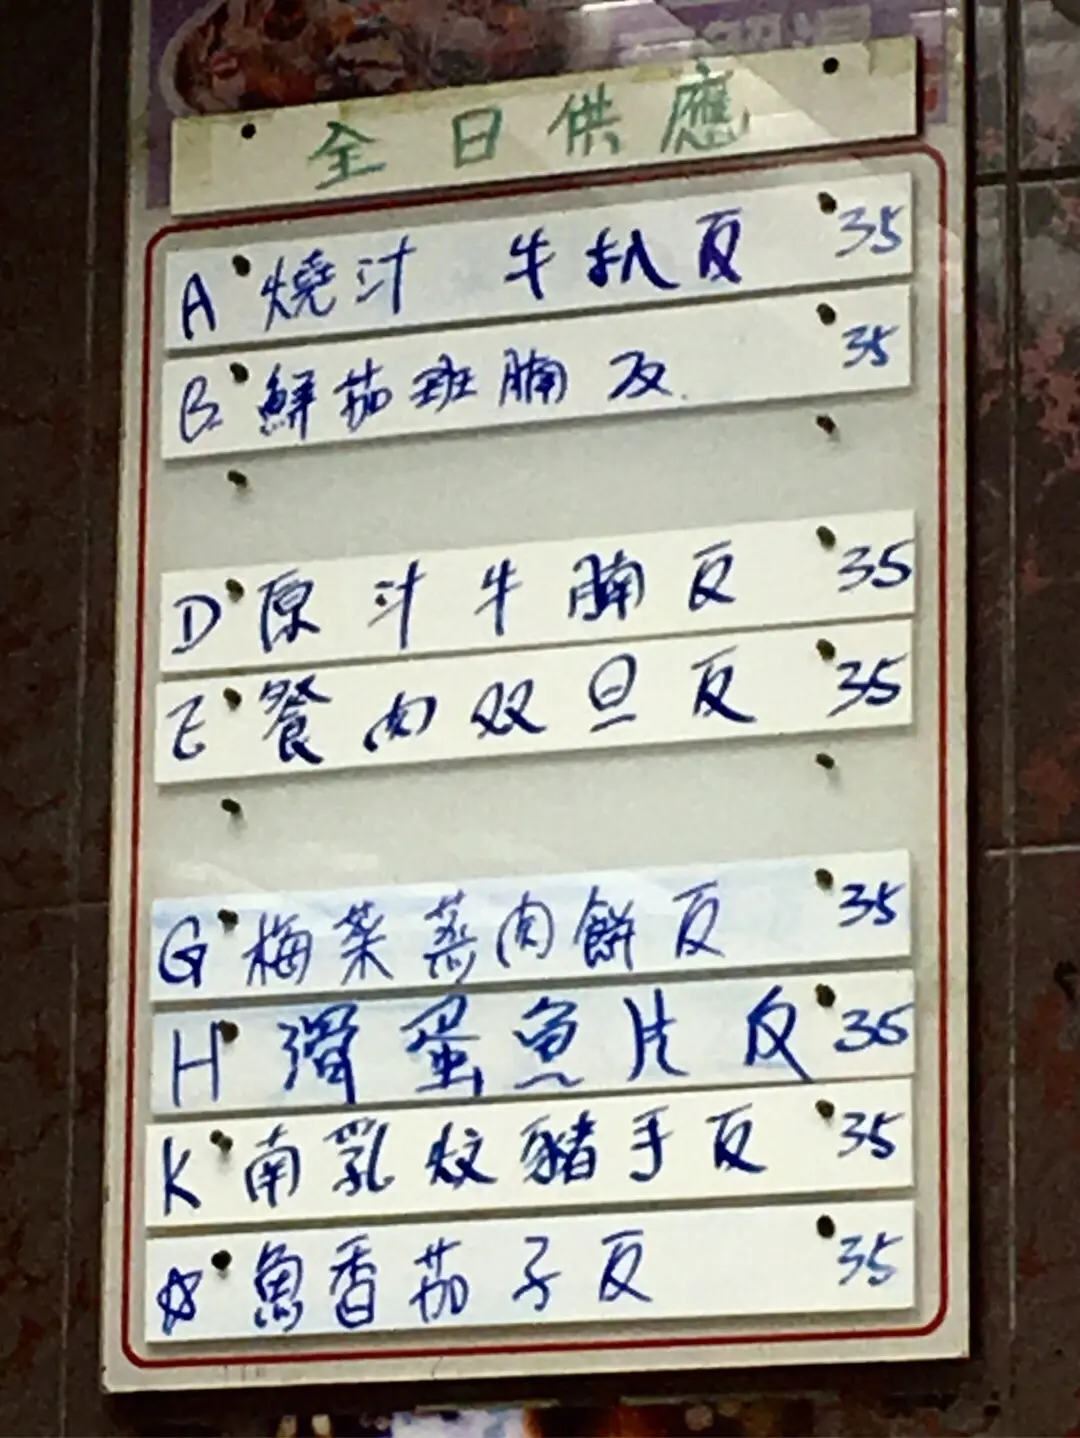 全日供應
A 燒汁 牛扒反 35
B 鮮茄班腩反 35
D 原汁牛腩反 35
E 餐肉双旦反 35
G 梅菜蒸肉餅反 35
H 滑蛋魚片反 35
K 南乳炆豬手反 35
☆ 魚香茄子反 35